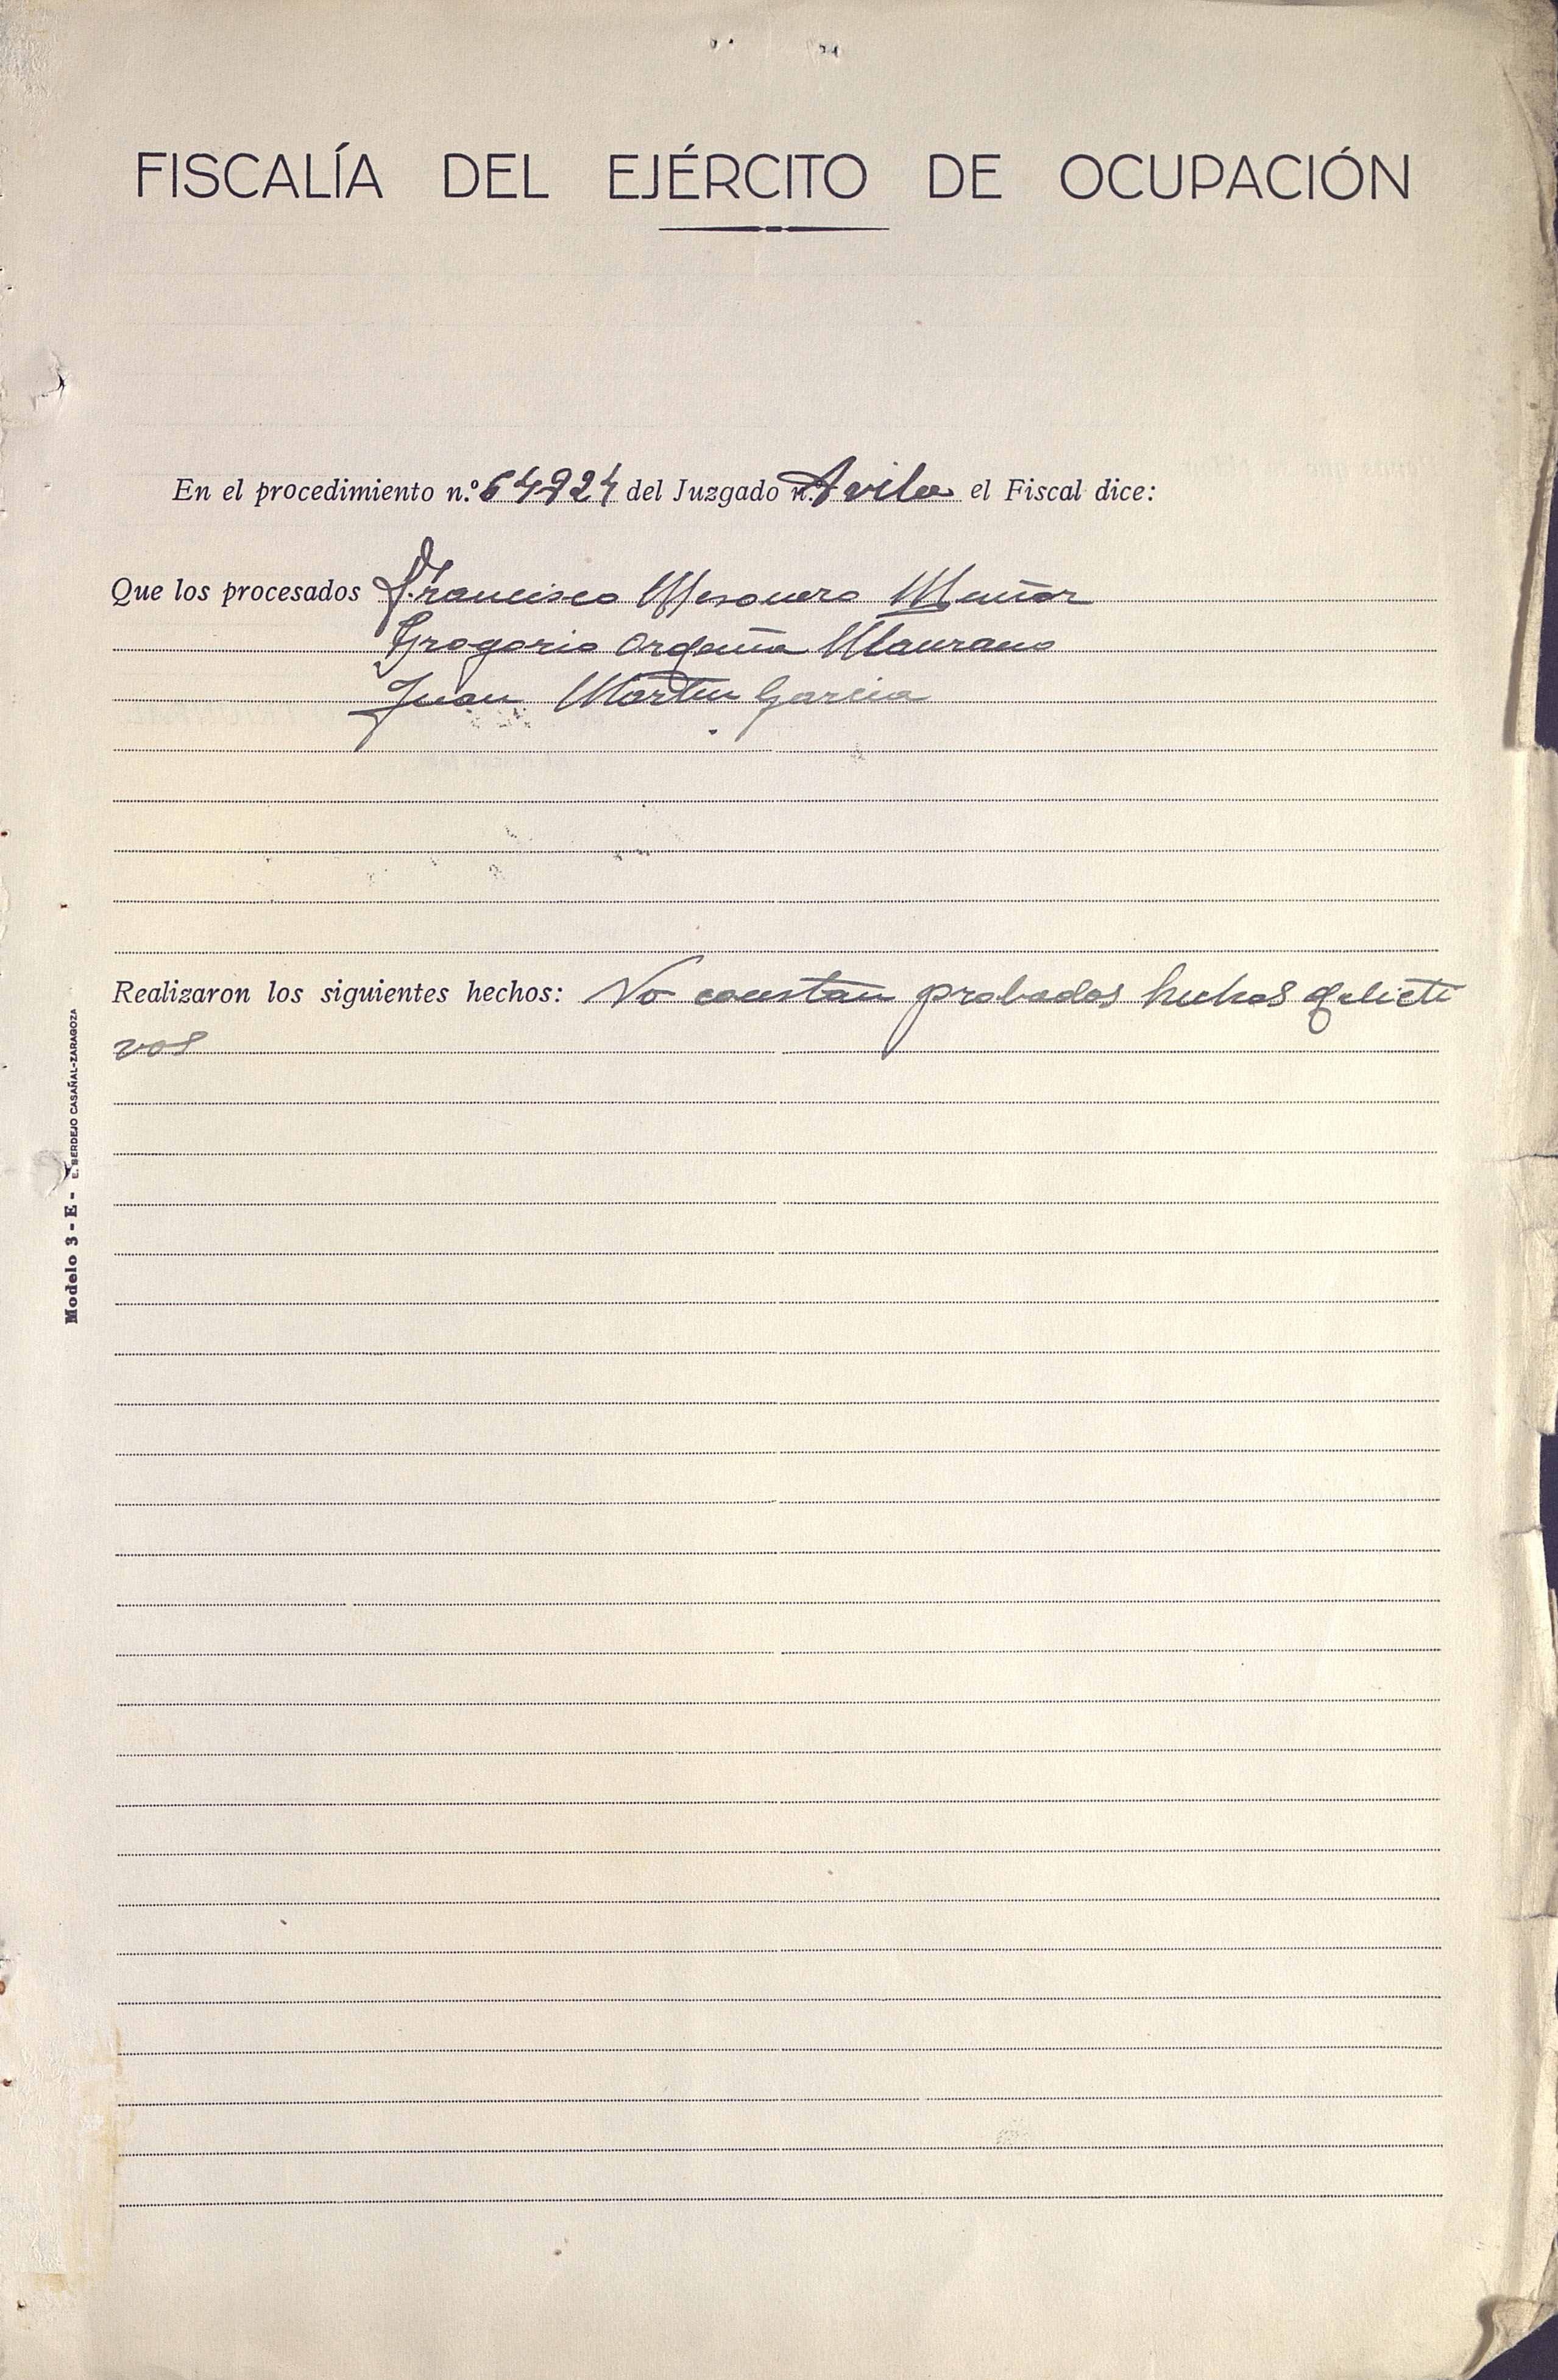 FISCALÍA DEL EJÉRCITO DE OCUPACIÓN
En el procedimiento n.º 64924 del Juzgado n.º Avila el Fiscal dice:
Que los procesados Francisco Mesonero Muñoz
Gregorio Organa Maurano
Juan Martin Garcia
Realizaron los siguientes hechos: No constan probados hechos delicti
vos
Modelo 3 - E - E. BERDEJO CASAÑAL-ZARAGOZA